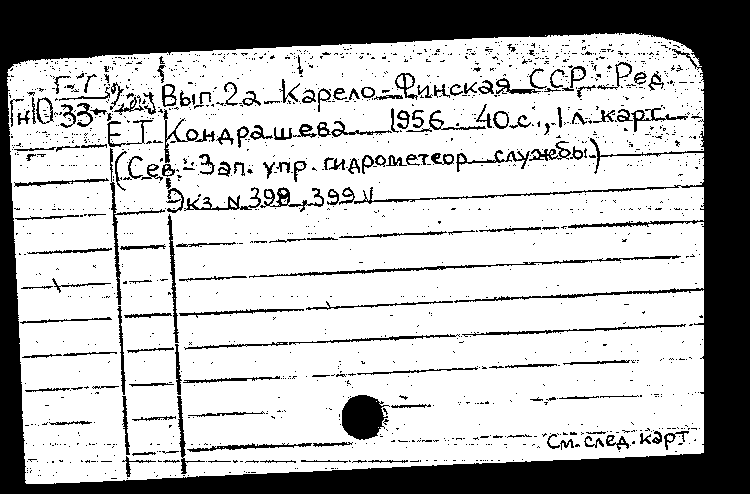 Г-7
Вып. 2а Карело-Финская ССР. Ред.
Н О 33
Е.Т. Кондрашева. 1956. 40 с., 1 л. карт.
(Сев.-Зап. упр. гидрометеор. службы)
Экз. N 398, 399
См. след. карт.